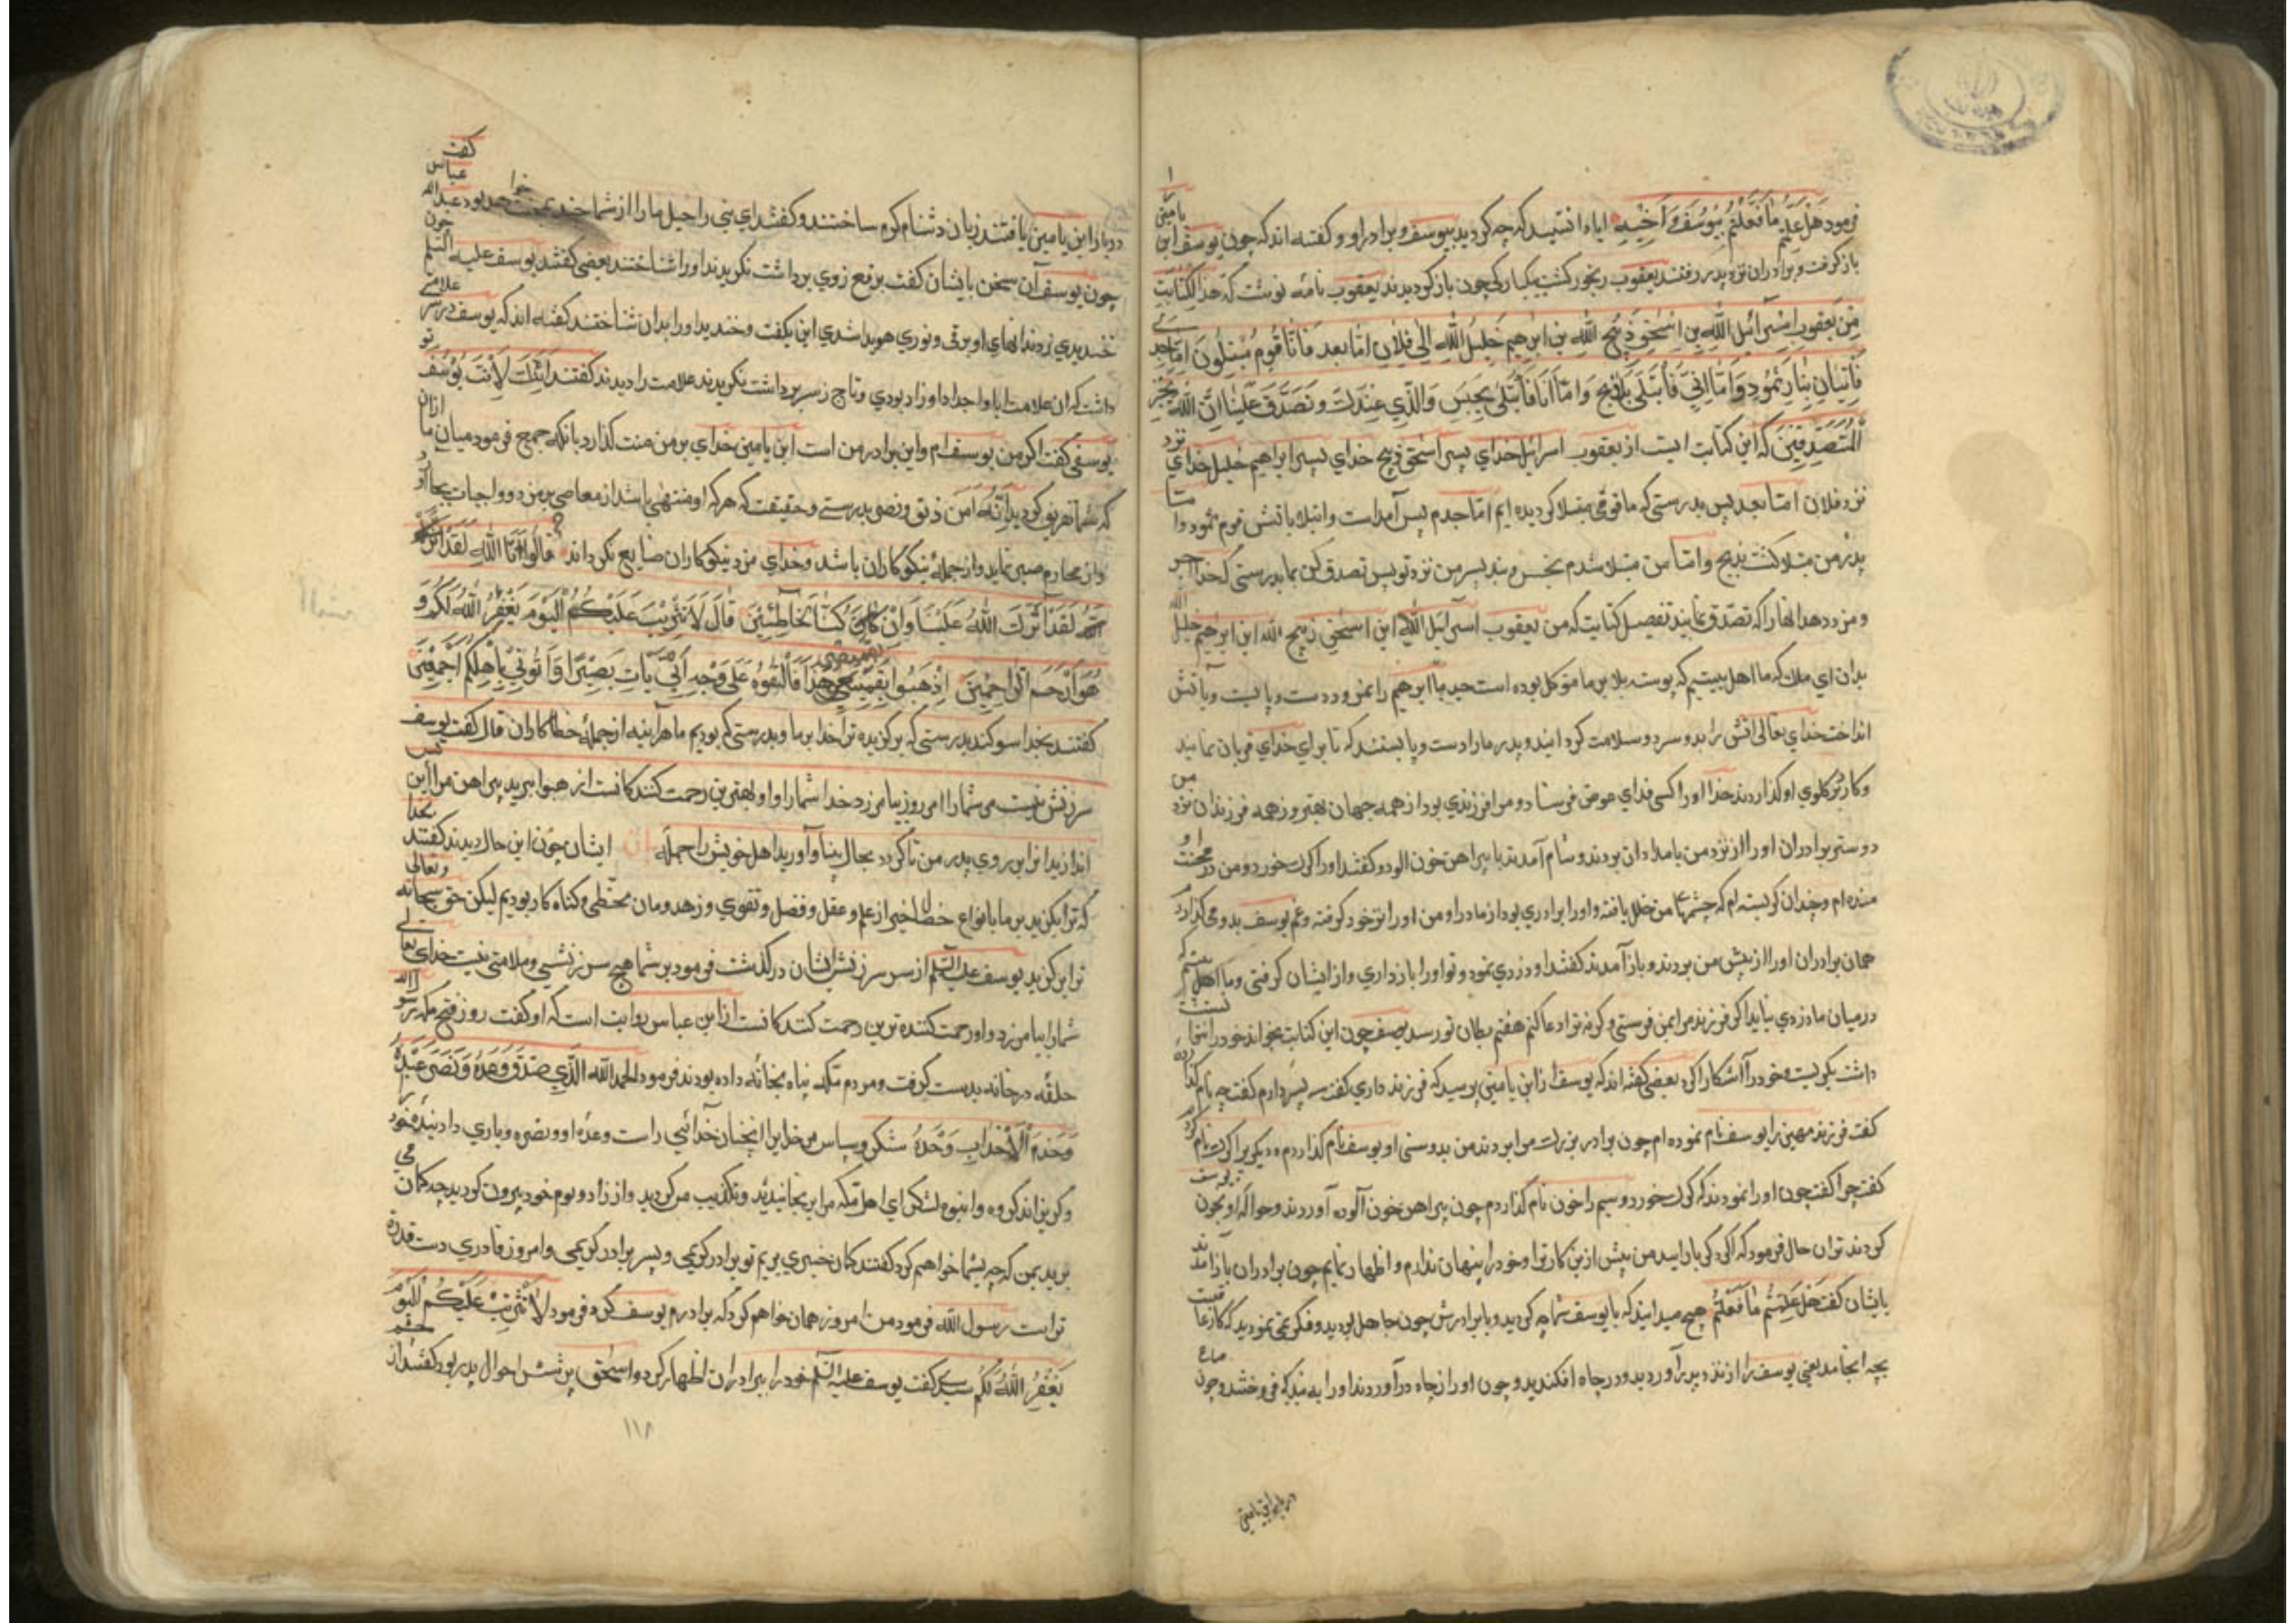 فرمود هل علمتم ما فعلتم بیوسف و اخیه ایا دانستید که چه کردید بیوسف و برادر او و گفته اند که چون یوسف ابن یامین را
باز گرفت و برادران نزد پدر رفتند یعقوب رنجور گشت یکبارکی چون باز گردیدند یعقوب نامه نوشت که هذا لکتابت
من یعقوب اسرائیل الله بن اسحق ذبیح الله بن ابرهیم خلیل الله الی فلان اما بعد فانا قوم مبتلون اما جدی
فابتلی بنار نمرود و اما ابی فابتلی بالذبح و اما انا فابتلی بحبس والذی عندک و تصدق علینا ان الله یجزی
المتصدقین که این کتابت است از یعقوب اسرائیل خدای پسر اسحق ذبیح خدای پسر ابراهیم خلیل خدای نزد
نزد فلان اما بعد پس بدرستی که ما قومی مبتلا گردیده ایم اما جدم پس آمد است و ابتلا باتش قوم نمرود و اما
پدر من مبتلا گشت بذبح و اما من مبتلا شدم بحبس و بند پسر من نزد تو پس تصدق کن بما بدرستی که خدا جبر
و مزد دهد انها را که تصدق نمایند تفصیل کتابت که من یعقوب اسرائیل الله ابن اسحق ذبیح الله ابن ابرهیم خلیل الله
بدان ای ملک که ما اهل بیتیم که پیوسته بلا بر ما موکل بوده است جد ما ابرهیم را نمرود دست و پا بست و باتش
انداخت خدای تعالی اتش را بدو سرد و سلامت گردانید و پدر مارا دست و پا بستند که تا برای خدای قربان نمایند
و کارد بر گلوی او گذاردند خدا او را کسی فدای عوض فرستاد و مرا فرزندی بود از همه جهان بهتر و ز همه فرزندان نزد من
دوستر برادران او را از نزد من بامدادان بردند و شام آمدند با پیراهن خون الود و گفتند او را گرگ خورد و من در محنت او
منده ام و چندان گریسته ام که چشمهای من خلل یافته و او را برادری بود از مادر او من او را نزد خود گرفته و غم یوسف بدو می گذاردم
همان برادران او را از پیش من بردند و باز آمدند گفتند او دزدی نمود و تو او را باز داری و از ایشان گرفتی و ما اهل بیتیم که
در میان ما دزدی نیاید اگر فرزند مرا بمن فرستی و گر نه ترا دعا کنم هفتم بطان تو رسد یوسف چون این کتابت بخواند خود را نتوانست
داشت بگریست و خود را آشکارا کرد بعضی گفته اند که یوسف از ابن یامین پرسید که فرزند داری گفت سه پسر دارم گفت چه نام گذارده
گفت فرزند مهین را یوسف نام نموده ام چون برادر بزرگ مرا بردند من بدوستی او یوسف نام گذاردم و دیگر برا گرگ نام کرد
گفت چرا گفت چون او را نمودند که گرگ خورد و سیم را خون نام گذاردم چون پیراهن خون آلوده آوردند و حواله او بخون یوسف
کردند تران حال فرمود که اگر یک بار ایید من بیش از ین کار ترا و خود را پنهان ندارم و اظهار نمایم چون برادران باز امدند
بایشان گفت هل علمتم ما فعلتم هیچ میدانید که با یوسف شما چه کردید و با برادرش چون جاهل بودید و فکر نمی نمودید که کار عاقبت
بچه انجامد یعنی یوسف را از نزد پدر آوردید و در چاه افکندید و چون او را از چاه در آوردند او را به بندگی فروختند و چون صاع
در بار ابن یامین
در بار ابن یامین یافتند زبان دشنام گرم ساختند و گفتند ای بنی راحیل مارا از شما چند محنت بود عبدالله عباس گفت
چون یوسف آن سخن بایشان گفت برقع ز روی برداشت نگریدند او را شناختند بعضی گفتند یوسف علیه السلم چون
خندیدی ز دندانهای او برقی و نوری هویدا شدی این بگفت و خندید او را بدان شناختند گفته اند که یوسف در سر علامتی
داشت که ان علامت ابا و اجداد او را د بودی و تاج ز سر برداشت نگریدند علامت را دیدند گفتند ائنک لانت یوسف تو
یوسفی گفت اگر من یوسف ام و این برادر من است ابن یامین خدای بر من منت گذارد بانکه جمع فرمود میان ما ازان
که شما تفریق کردید انه من یتق و یصبر بدرستی و حقیقت که هر که او منتهی باشد از معاصی بر مزد و واجبات بجا آورد
و از محارم صبر نماید و از جمله نیکوکاران باشد و خدای مزد نیکوکاران ضایع نگرداند قالوا تالله لقد اثرک
الله لقد آثرک الله علینا و ان کنا لخاطئین قال لا تثریب علیکم الیوم یغفر الله لکم و
هو ارحم الراحمین اذهبوا بقمیصی هذا فالقوه علی وجه ابی یات بصیرا و اتونی باهلکم اجمعین
گفتند بخدا سوگند بدرستی که برگزیده ترا خدا بر ما و بدرستی که بودیم ما هرآینه از جمله خطاکاران قال گفت یوسف
سرزنش نیست مر شمارا امروز بیامرزد خدا شمارا و او بهترین رحمت کنندکانست اذهبوا ببرید پیراهن مرا این پس
اندازید انرا بر روی پدر من تا گردد بحال بینا و آورید اهل خویش را جمله ایشان چون این حال دیدند گفتند بخدا
که ترا بگزید بر ما بانواع خصال خیر از علم و عقل و فضل و تقوی و زهد و مان مخطی و گناه کار بودیم لیکن حق سبحانه و تعالی
ترا برگزید یوسف علیه السلم از سر سرزنش ایشان در گذشت فرمود بر شما هیچ سرزنشی و ملامتی نیست خدای تعالی
شمارا بیامرزد و او رحمت کننده ترین رحمت کنندکانست از ابن عباس روایت است که او گفت روز فتح مکه رسول الله
حلقه در خانه بدست گرفت و مردم مکه پناه بخانه داده بودند فرمود الحمد لله الذی صدق وعده و نصر عبده
و هزم الاحزاب وحده شکر و سپاس مر خدایرا انچنان خدائی راست وعده او و نصره و یاری داد بنده خود را
و گریزاند گروه و انبوه لشکر ای اهل مکه مرا برنجانیدید و تکذیب مر کردید و از زاد و بوم خود بیرون کردید چه گمان می
برید بمن که چه بشما خواهم کرد گفتند گمان خیری بریم تو برادر کریمی و پسر برادر کریمی و امروز قادری دست قدرة
تراست رسول الله فرمود من امروز همان خواهم کرد که برادرم یوسف کرد و فرمود لا تثریب علیکم الیوم
یغفر الله لکم سدی گفت یوسف علیه السلم خود را ببرادران اظهار کرد و اسحق پرسش احوال پدر بود گفتند از
۱۱۸